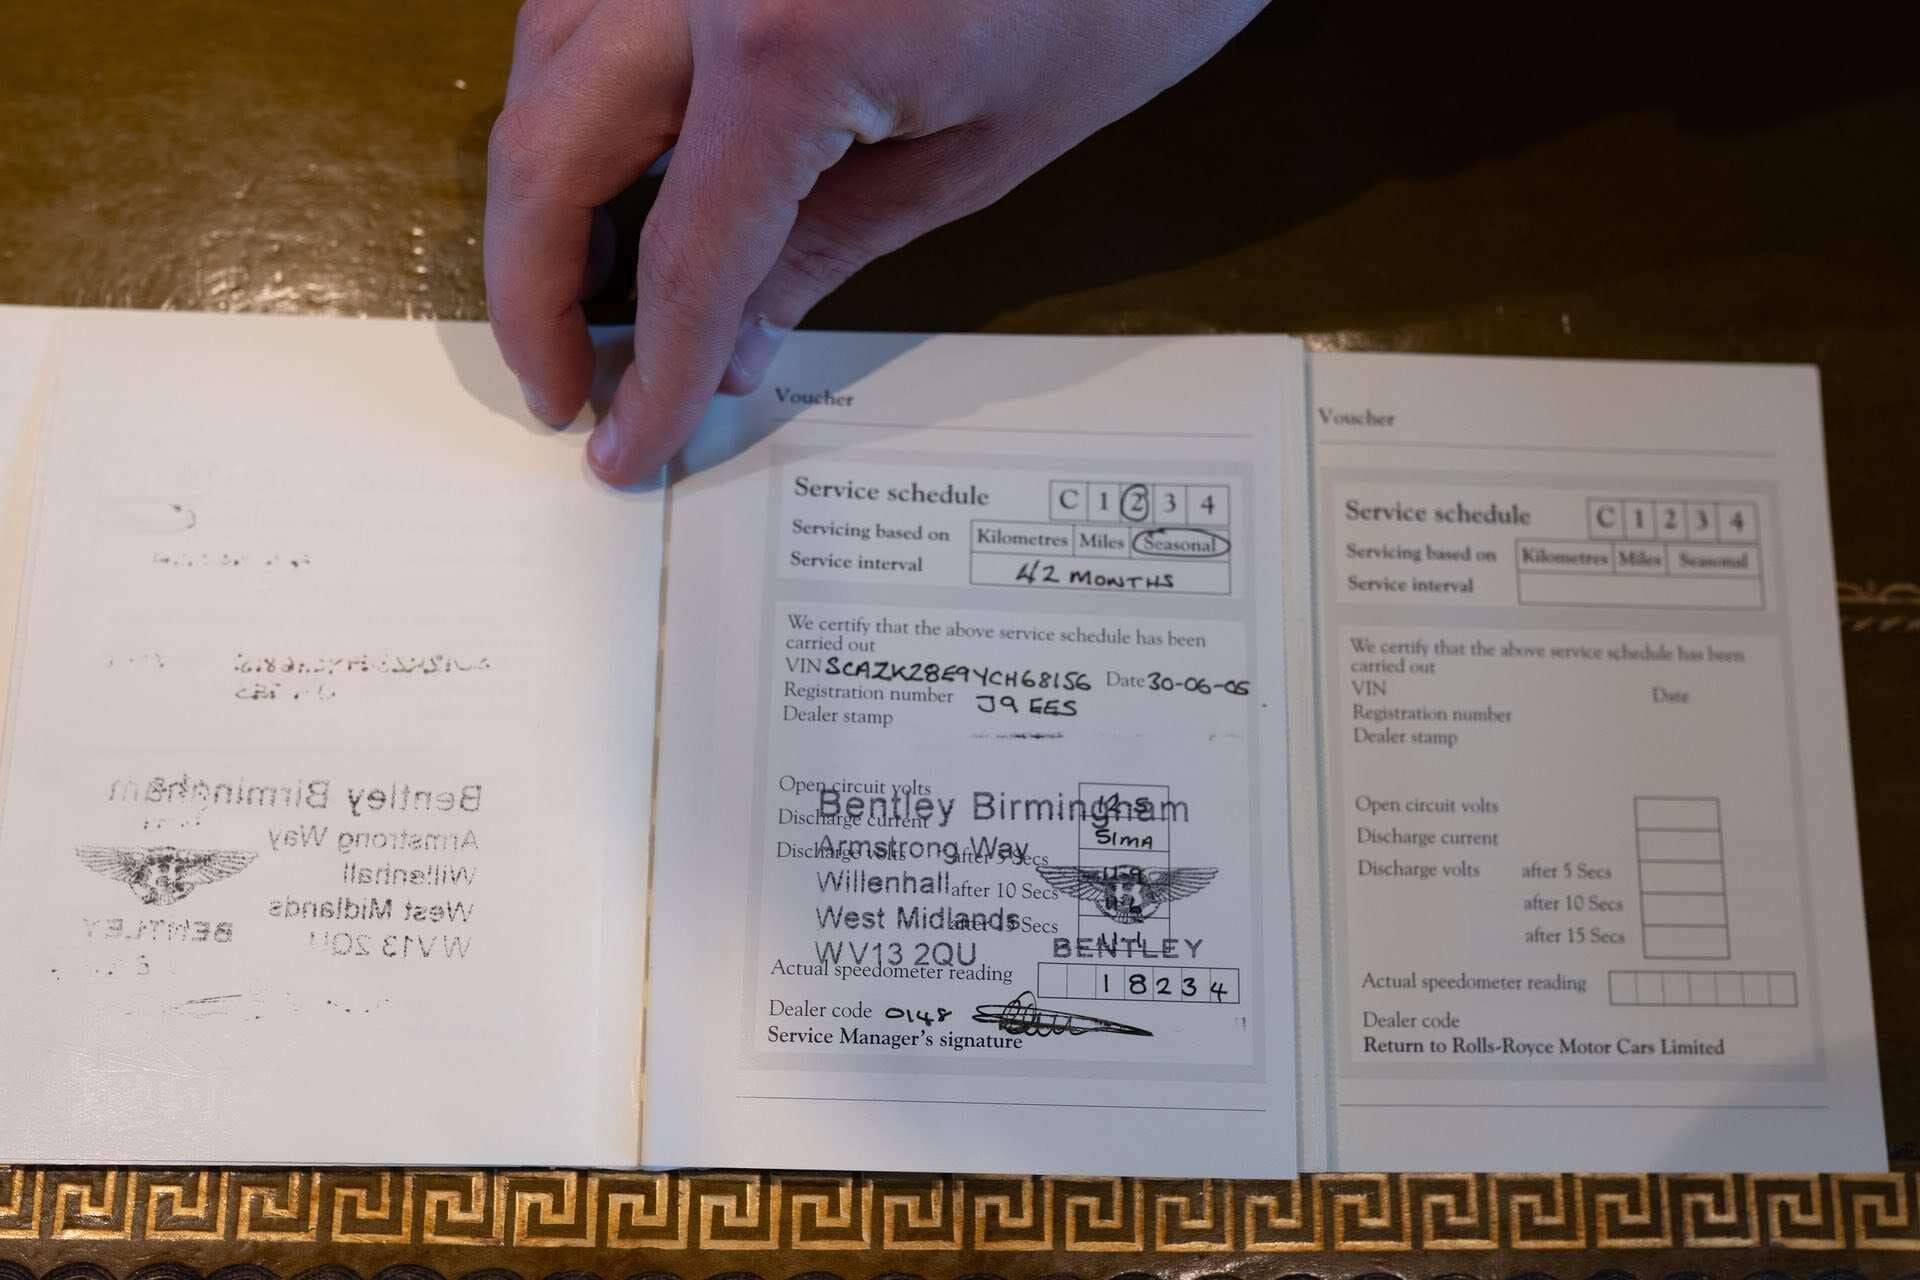 Bentley Birmingham
Armstrong Way
Willenhall
West Midlands
WV13 2QU
BENTLEY
Voucher
Service schedule C 1 2 3 4
Servicing based on Kilometres Miles Seasonal
Service interval 42 MONTHS
We certify that the above service schedule has been
carried out
VIN SCAZK28E9YCH68156 Date 30-06-05
Registration number J9 EES
Dealer stamp
Open circuit volts 12.5
Bentley Birmingham
Discharge current 51MA
Armstrong Way
Discharge volts after 5 Secs 11.9
Willenhall
after 10 Secs
West Midlands
after 15 Secs
WV13 2QU
BENTLEY
Actual speedometer reading 18234
Dealer code 0148
Service Manager's signature
Voucher
Service schedule C 1 2 3 4
Servicing based on Kilometres Miles Seasonal
Service interval
We certify that the above service schedule has been
carried out
VIN Date
Registration number
Dealer stamp
Open circuit volts
Discharge current
Discharge volts after 5 Secs
after 10 Secs
after 15 Secs
Actual speedometer reading
Dealer code
Return to Rolls-Royce Motor Cars Limited